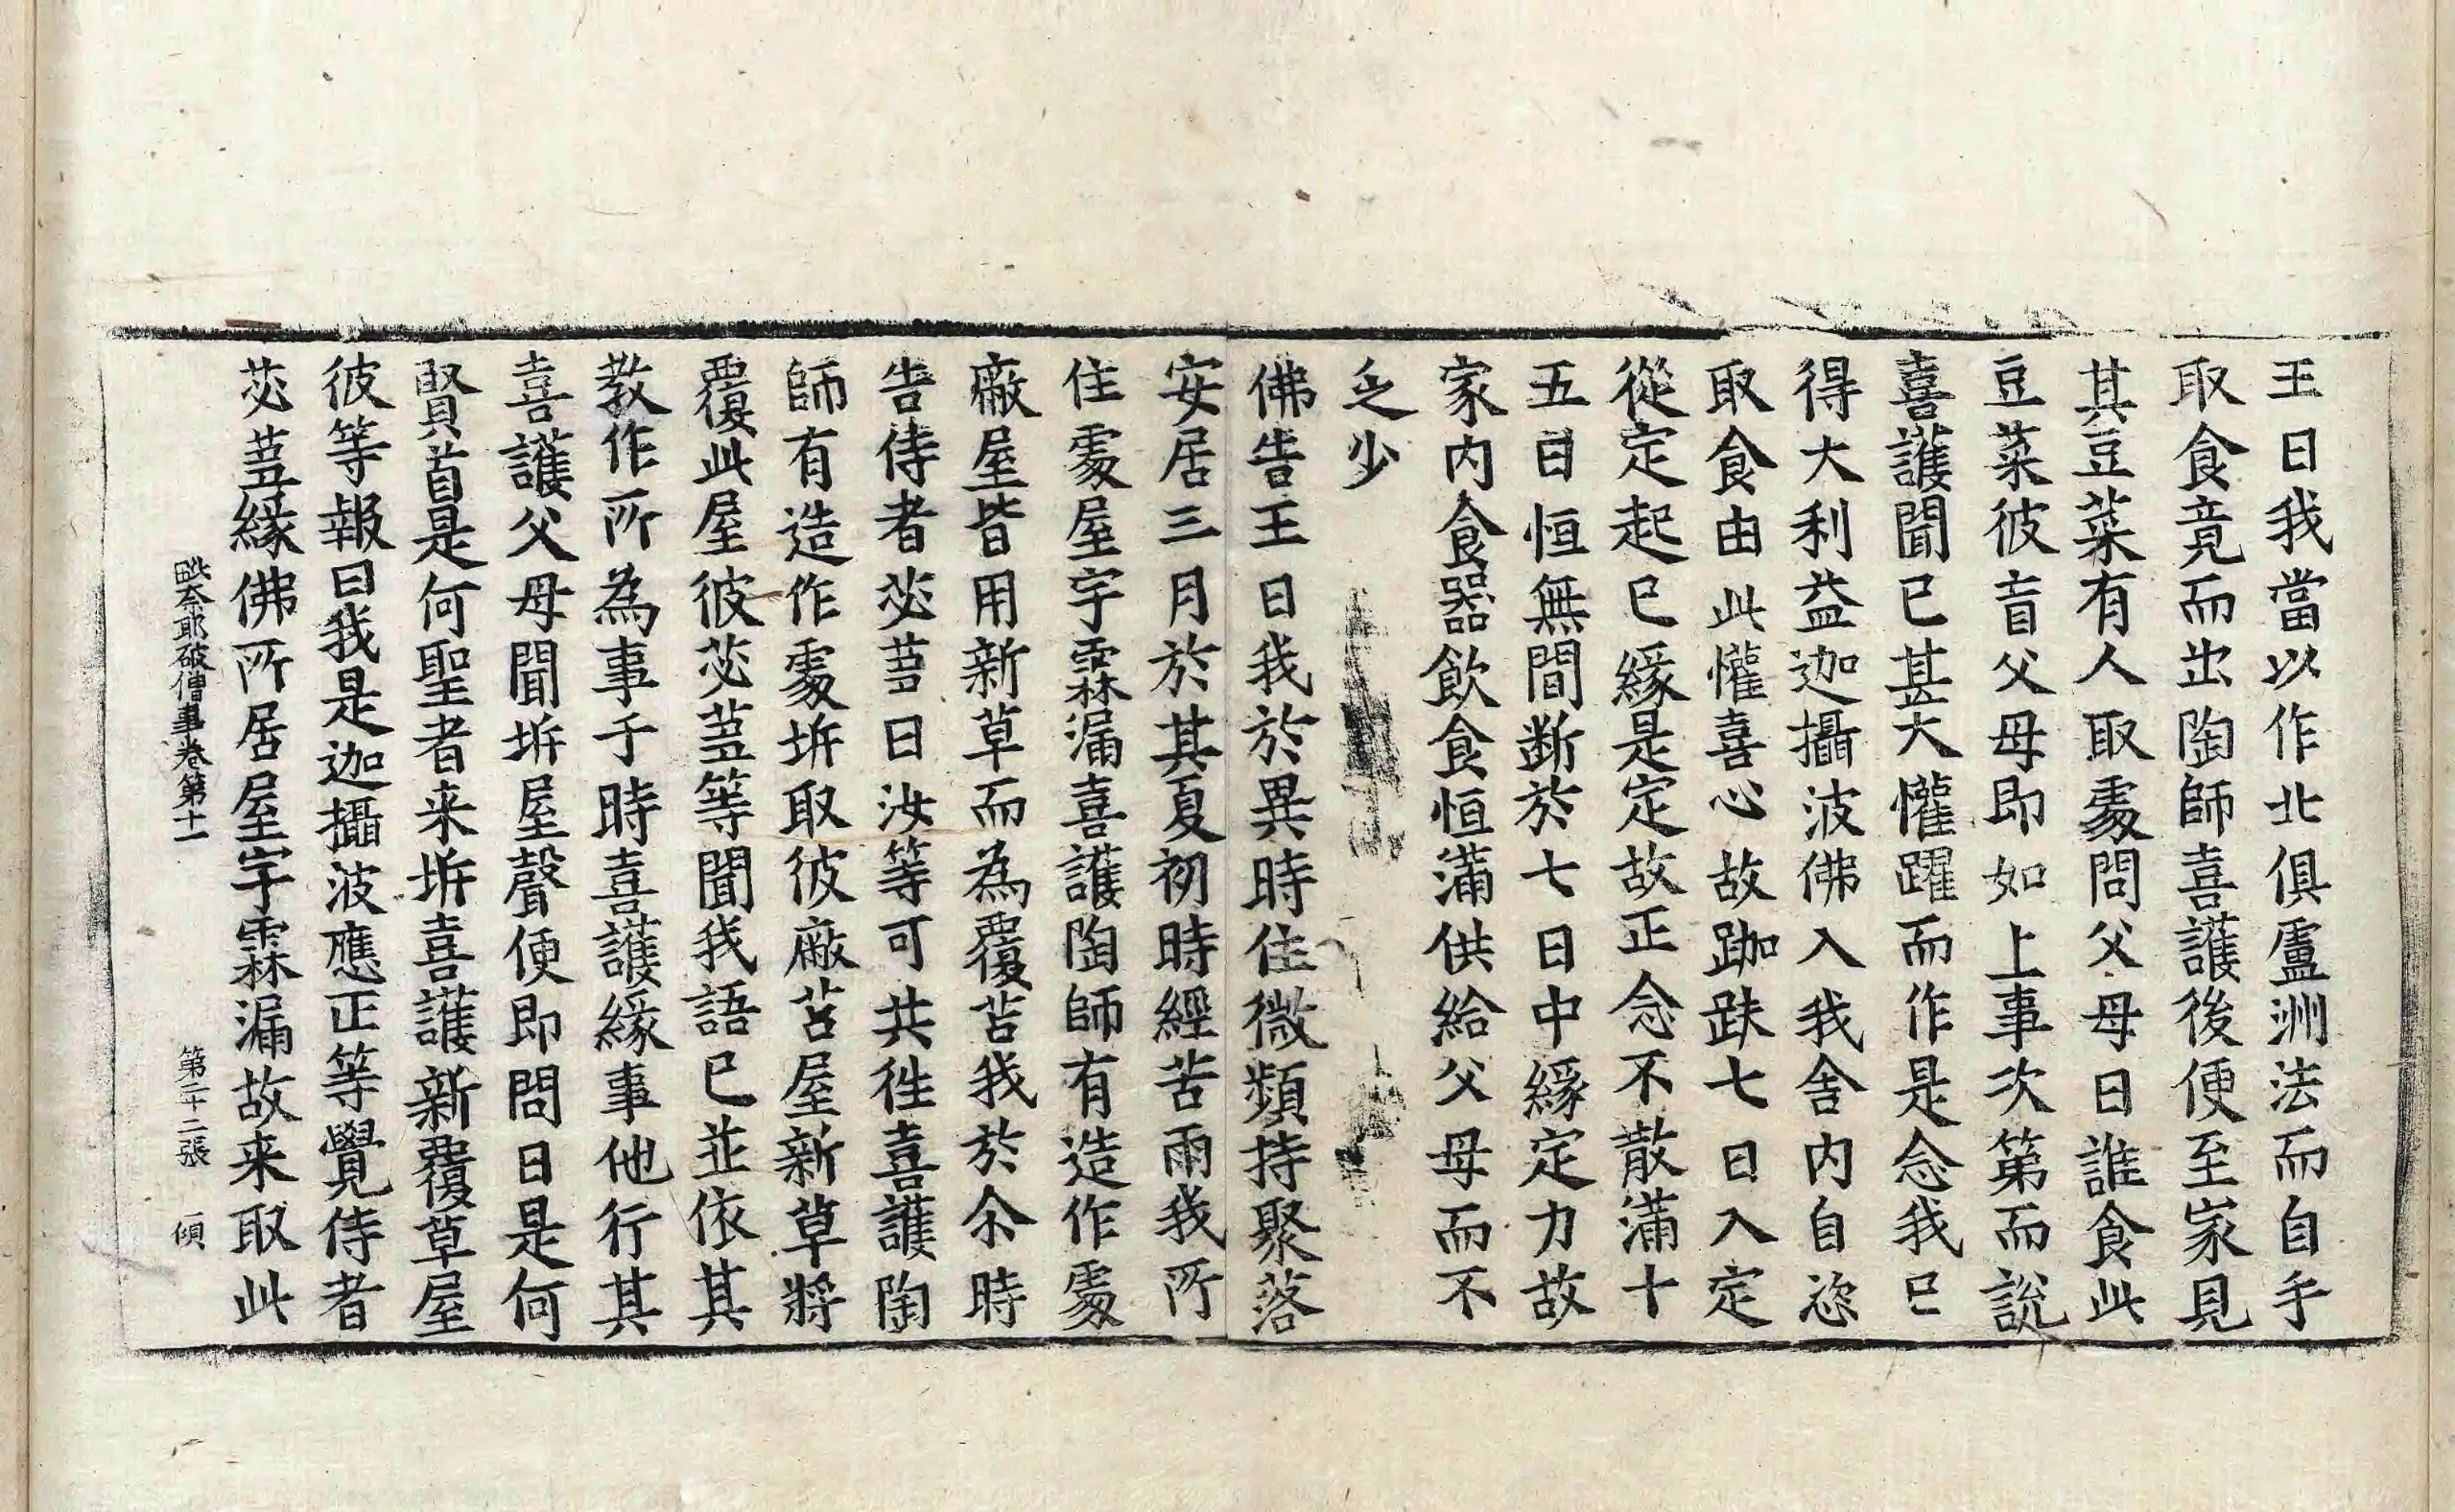 王曰我當以作北俱盧洲法而自手
取食竟而出陶師喜護後便至家見
其豆菜有人取處問父母曰誰食此
豆菜彼盲父母即如上事次第而說
喜護聞已甚大懽躍而作是念我已
得大利益迦攝波佛入我舍內自恣
取食由此懽喜心故跏趺七日入定
從定起已緣是定故正念不散滿十
五日恒無間斷於七日中緣定力故
家內食器飲食恒滿供給父母而不
乏少
佛告王曰我於異時住微頻持聚落
安居三月於其夏初時經苦雨我所
住處屋宇霖漏喜護陶師有造作處
廠屋皆用新草而為覆苫我於尒時
告侍者苾芻曰汝等可共徃喜護陶
師有造作處坼取彼廠苫屋新草將
覆此屋彼苾蒭等聞我語已並依其
教作所為事于時喜護緣事他行其
喜護父母聞坼屋聲便即問曰是何
賢首是何聖者来坼喜護新覆草屋
彼等報曰我是迦攝波應正等覺侍者
苾蒭緣佛所居屋宇霖漏故来取此
毗奈耶破僧事卷第十一 第二十二張 傾